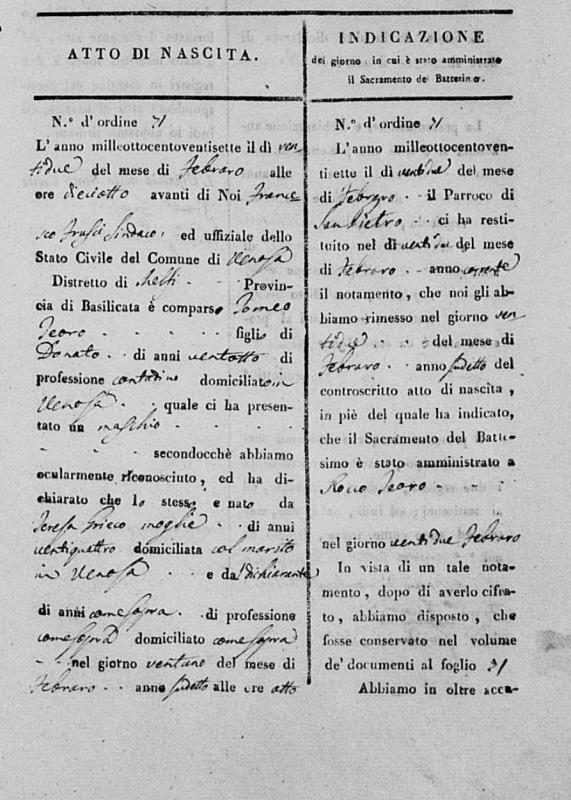 ATTO DI NASCITA.
N.º d'ordine 71
L'anno milleottocentoventisette il dì ven
tidue del mese di Febraro alle
ore dieciotto avanti di Noi Frances
co Sindaco, ed uffiziale dello
Stato Civile del Comune di Venosa
Distretto di Melfi Provin-
cia di Basilicata è comparso Tomeo
Teoro figlio di
Donato di anni ventotto di
professione contadino domiciliato in
Venosa quale ci ha presen-
tato un maschio
secondocchè abbiamo
ocularmente riconosciuto, ed ha di-
chiarato che lo stesso e nato da
Teresa Grieco moglie di anni
ventiquattro domiciliata col marito
in Venosa e da dichiarante
di anni come sopra di professione
come sopra domiciliato come sopra
nel giorno ventuno del mese di
Febraro anno sudetto alle ore otto
INDICAZIONE
del giorno in cui è stato amministrato
il Sacramento del Battesimo.
N.º d'ordine 71
L'anno milleottocentoven-
tisette il dì ventidue del mese
di Febraro il Parroco di
San Pietro ci ha resti-
tuito nel dì ventidue del mese
di Febraro anno corrente
il notamento, che noi gli ab-
biamo rimesso nel giorno ven
tidue del mese di
Febraro anno sudetto del
controscritto atto di nascita,
in piè del quale ha indicato,
che il Sacramento del Batte-
simo è stato amministrato a
Rocco Teoro
nel giorno ventidue Febraro
In vista di un tale nota-
mento, dopo di averlo cifra-
to, abbiamo disposto, che
fosse conservato nel volume
de' documenti al foglio 71
Abbiamo in oltre acca-